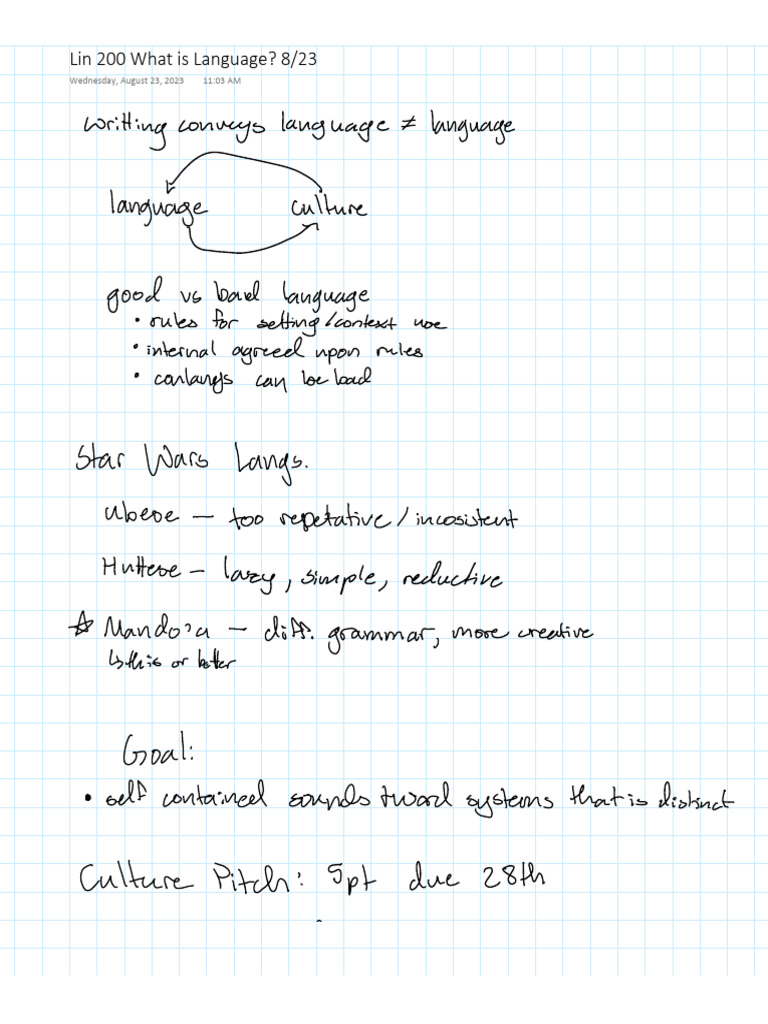 Lin 200 What is Language? 8/23
Wednesday, August 23, 2023 11:03 AM
writting conveys language ≠ language
language culture
good vs bad language
• rules for setting/context use
• internal agreed upon rules
• conlangs can be bad
Star Wars Langs.
Ubese — too repetative/incosistent
Huttese — lazy, simple, reductive
☆ Mando'a — diff. grammar, more creative
↳ this or better
Goal:
• self contained sounds + word systems that is distinct
Culture Pitch: 5pt due 28th